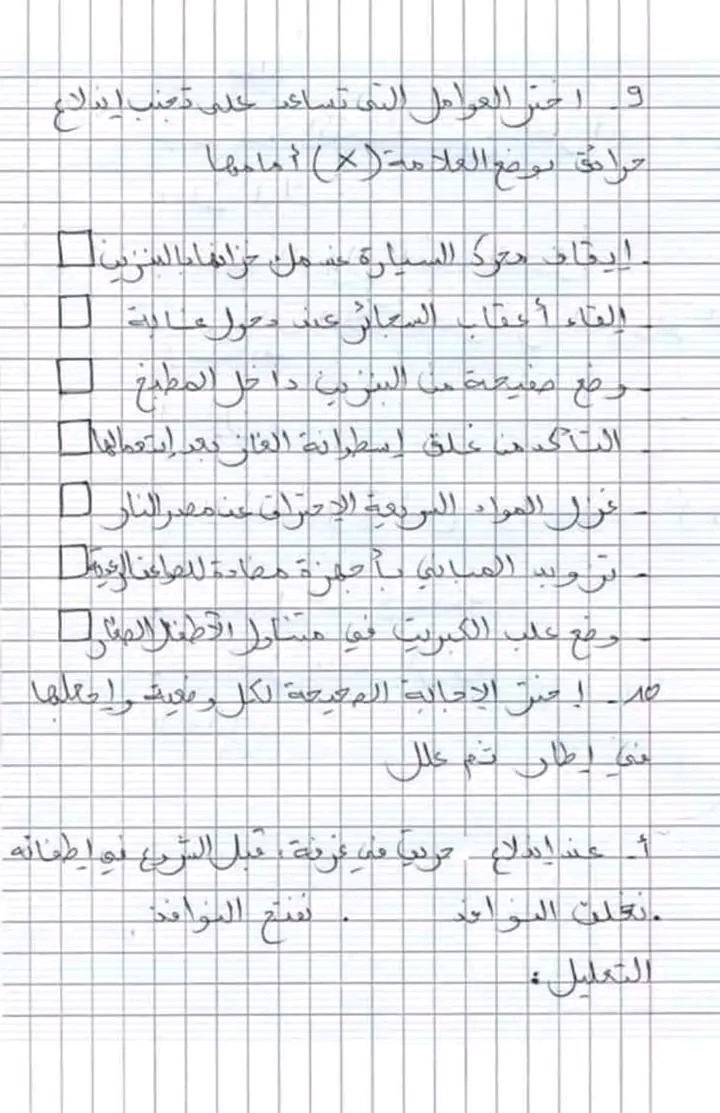 9 - اختر العوامل التي تساعد على تجنب إندلاع
حرائق بوضع العلامة (x) أمامها
- إيقاف محرك السيارة عند ملء خزانها بالبنزين
- إلقاء أعقاب السجائر عند دخول غابة
- وضع صفيحة من البنزين داخل المطبخ
- التأكد من غلق إسطوانة الغاز بعد إستعمالها
- عزل المواد السريعة الإحتراق عن مصدر النار
- تزويد المباني بأجهزة مضادة للصواعق الرعدية
- وضع علب الكبريت في متناول الأطفال الصغار
10 - إختر الإجابة الصحيحة لكل وضعية واجعلها
في إطار ثم علل
أ - عند إندلاع حريق في غرفة، قبل الشروع في إطفائه
. نغلق النوافذ . نفتح النوافذ
التعليل :